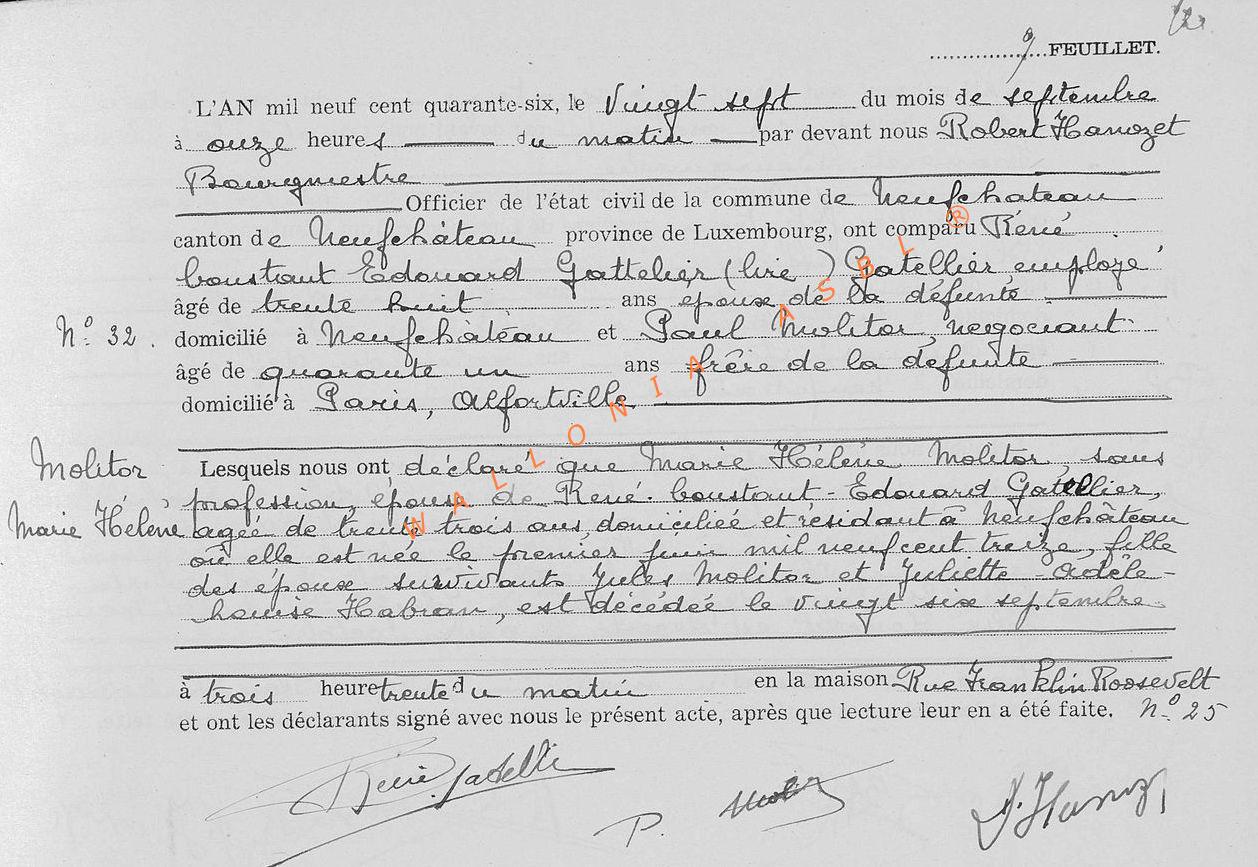 9 FEUILLET.
L'AN mil neuf cent quarante-six, le vingt sept du mois de septembre
à onze heures du matin par devant nous Robert Hanozet
Bourgmestre
Officier de l'état civil de la commune de Neufchateau
canton de Neufchâteau province de Luxembourg, ont comparu Réné
Constant Edouard Gattelier (lire ) Gatellier employé
âgé de trente huit ans époux de la défunte
N° 32. domicilié à Neufchâteau et Paul Molitor, négociant
âgé de quarante un ans frère de la défunte
domicilié à Paris, Alfortville
Molitor Lesquels nous ont déclaré que Marie Hélène Molitor, sans
profession, épouse de René-Constant-Edouard Gatellier,
Marie Hélène agée de trente trois ans, domiciliée et résidant à Neufchâteau
où elle est née le premier juin mil neuf cent treize, fille
des époux survivants Jules Molitor et Juliette-Adèle-
Louise Habran, est décédée le vingt six septembre
à trois heure trente du matin en la maison Rue Franklin Roosevelt
et ont les déclarants signé avec nous le présent acte, après que lecture leur en a été faite. N° 25
René Gatelli P. Molitor
WALLONIA ASBL ®